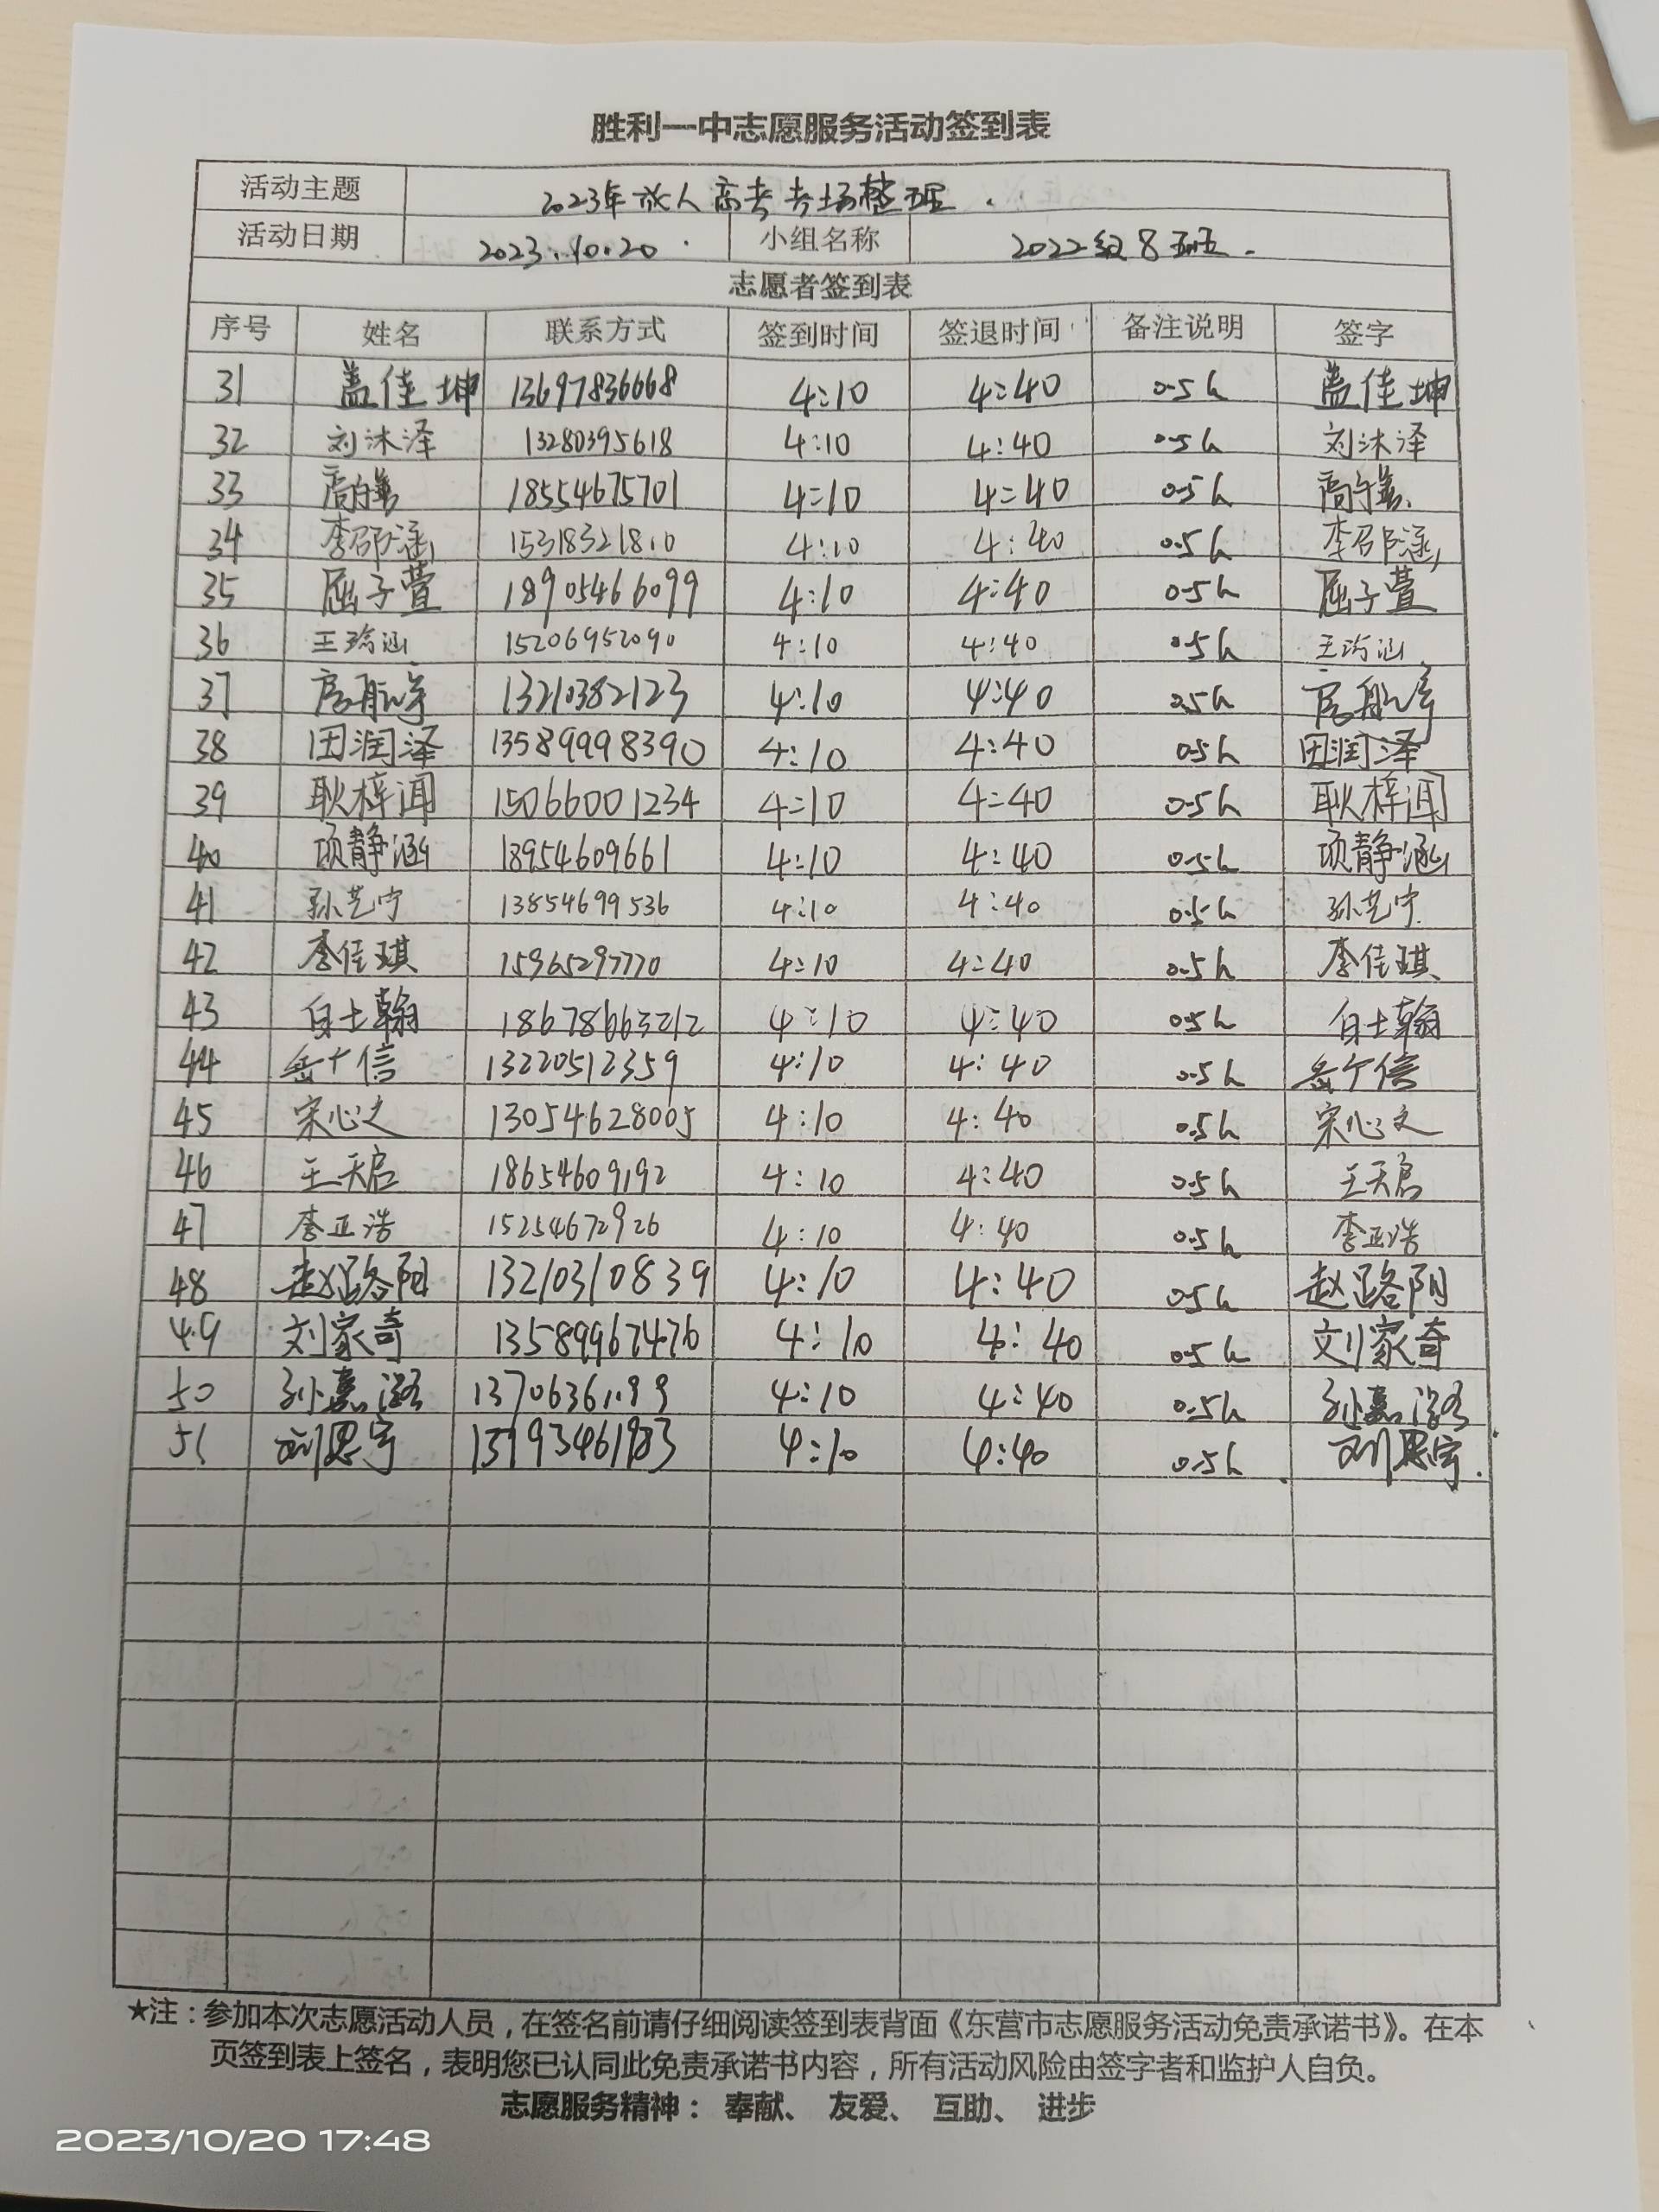 胜利一中志愿服务活动签到表
活动主题 2023年成人高考考场整理.
活动日期 2023.10.20. 小组名称 2022级8班.
志愿者签到表
序号 姓名 联系方式 签到时间 签退时间 备注说明 签字
31 盖佳坤 13697836668 4:10 4:40 0.5h 盖佳坤
32 刘沐泽 13280395618 4:10 4:40 0.5h 刘沐泽
33 18554675701 4:10 4:40 0.5h
34 李邵涵 15318321810 4:10 4:40 0.5h 李邵涵
35 屈子萱 18905466099 4:10 4:40 0.5h 屈子萱
36 王瑜涵 15206952090 4:10 4:40 0.5h 王瑜涵
37 13210382123 4:10 4:40 0.5h
38 田润泽 13589998390 4:10 4:40 0.5h 田润泽
39 耿梓闻 15066001234 4:10 4:40 0.5h 耿梓闻
40 项静涵 18954609661 4:10 4:40 0.5h 项静涵
41 孙艺宁 13854699536 4:10 4:40 0.5h 孙艺宁
42 李佳琪 15965297770 4:10 4:40 0.5h 李佳琪
43 白士翰 18678663212 4:10 4:40 0.5h 白士翰
44 13220512359 4:10 4:40 0.5h
45 宋心文 13054628005 4:10 4:40 0.5h 宋心文
46 王天启 18654609192 4:10 4:40 0.5h 王天启
47 李正浩 15254672926 4:10 4:40 0.5h 李正浩
48 赵路阳 13210310839 4:10 4:40 0.5h 赵路阳
49 刘家奇 13589967476 4:10 4:40 0.5h 刘家奇
50 孙嘉潞 13706361199 4:10 4:40 0.5h 孙嘉潞
51 刘恩宇 4:10 4:40 0.5h 刘恩宇.
★注：参加本次志愿活动人员，在签名前请仔细阅读签到表背面《东营市志愿服务活动免责承诺书》。在本
页签到表上签名，表明您已认同此免责承诺书内容，所有活动风险由签字者和监护人自负。
志愿服务精神： 奉献、 友爱、 互助、 进步
2023/10/20 17:48